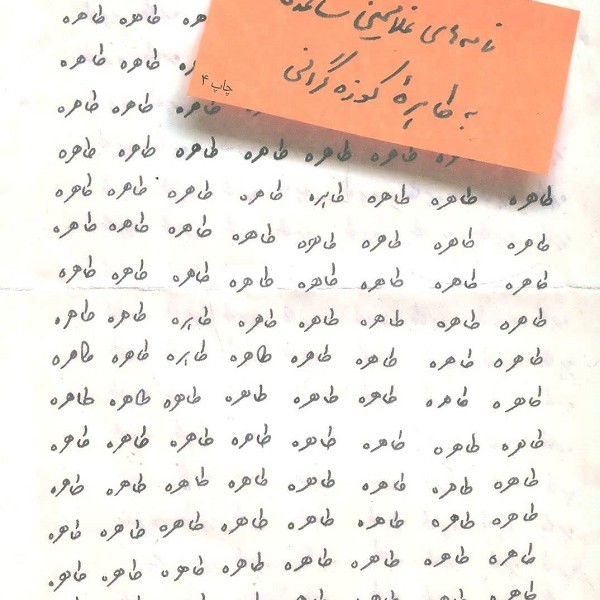 نامه‌های غلامحسین ساعدی
به طاهرهٔ کوزه‌گرانی
چاپ ۴
طاهره طاهره
طاهره طاهره
طاهره طاهره طاهره
طاهره طاهره طاهره طاهره طاهره طاهره
طاهره طاهره طاهره طاهره طاهره طاهره طاهره طاهره
طاهره طاهره طاهره طاهره طاهره طاهره طاهره طاهره
طاهره طاهره طاهره طاهره طاهره طاهره طاهره طاهره
طاهره طاهره طاهره طاهره طاهره طاهره طاهره طاهره
طاهره طاهره طاهره طاهره طاهره طاهره طاهره طاهره
طاهره طاهره طاهره طاهره طاهره طاهره طاهره طاهره
طاهره طاهره طاهره طاهره طاهره طاهره طاهره طاهره
طاهره طاهره طاهره طاهره طاهره طاهره طاهره طاهره
طاهره طاهره طاهره طاهره طاهره طاهره طاهره طاهره
طاهره طاهره طاهره طاهره طاهره طاهره طاهره طاهره